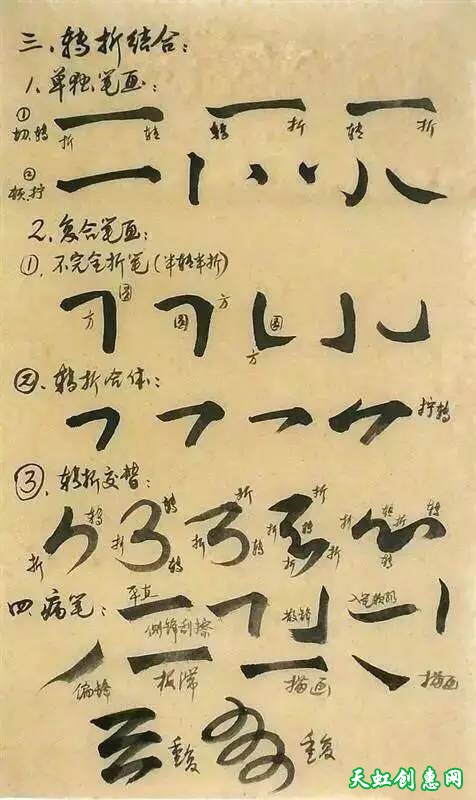 三、转折结合：
1、单独笔画：
① 切、转 折 转 转 折 转 折
② 顿、拧
2、复合笔画：
①、不完全折笔（半转半折）
方 圆 圆 方 圆 方
②、转折合体：
拧转
③、转折交替：
折 转 折 转 转 折 折 转 折 折 转 折 折 折 转 折 转 转
四、病笔：
平直 侧锋刮擦 散锋
偏锋 板滞 描画 描画
重复 重复
天虹创惠网